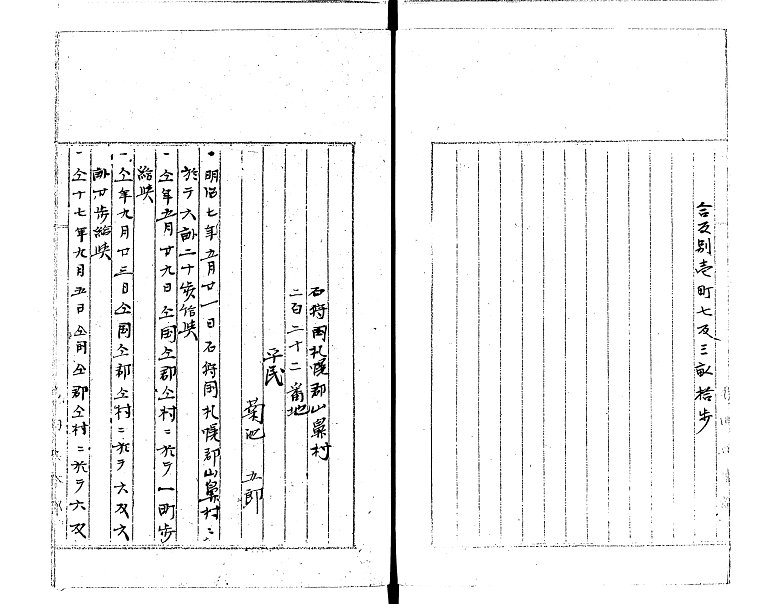 合反別壱町七反三畝拾歩
石狩国札幌郡山鼻村
二百二十二番地
平民
菊池五郎
・明治七年五月廿一日石狩国札幌郡山鼻村ニ
於テ六畝二十歩給与
一仝年五月廿九日仝国仝郡仝村ニ於テ一町歩
給与
一仝年九月廿三日仝国仝郡仝村ニ於テ六反六
畝廿歩給与
一仝十七年九月五日仝国仝郡仝村ニ於テ六反